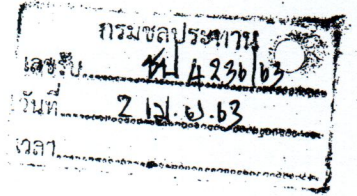 กรมชลประทาน
เลขรับ ชป 4236/63
วันที่ 2 เม.ย. 63
เวลา